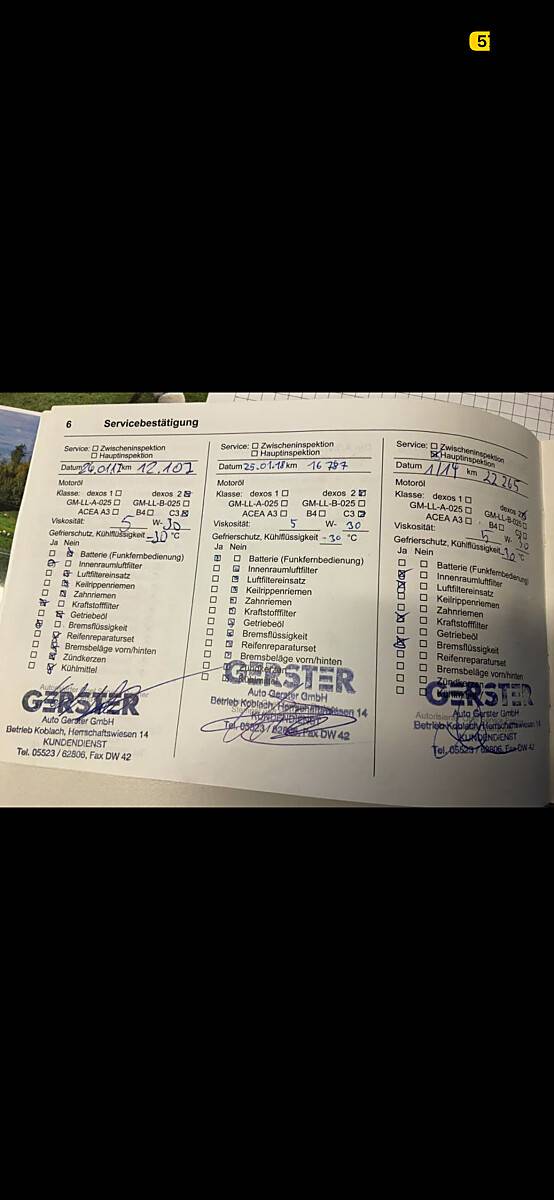 5
6 Servicebestätigung
Service: Zwischeninspektion
Hauptinspektion
Datum km 12.107
Motoröl
Klasse: dexos 1 dexos 2
GM-LL-A-025 GM-LL-B-025
ACEA A3 B4 C3
Viskosität: 5 W- 30
Gefrierschutz, Kühlflüssigkeit -30 °C
Ja Nein
Batterie (Funkfernbedienung)
Innenraumluftfilter
Luftfiltereinsatz
Keilrippenriemen
Zahnriemen
Kraftstofffilter
Getriebeöl
Bremsflüssigkeit
Reifenreparaturset
Bremsbeläge vorn/hinten
Zündkerzen
Kühlmittel
GERSTER
Auto Gerster GmbH
Betrieb Koblach, Herrschaftswiesen 14
KUNDENDIENST
Tel. 05523 / 62806, Fax DW 42
Service: Zwischeninspektion
Hauptinspektion
Datum 25.01.18 km 16 787
Motoröl
Klasse: dexos 1 dexos 2
GM-LL-A-025 GM-LL-B-025
ACEA A3 B4 C3
Viskosität: 5 W- 30
Gefrierschutz, Kühlflüssigkeit -30 °C
Ja Nein
Batterie (Funkfernbedienung)
Innenraumluftfilter
Luftfiltereinsatz
Keilrippenriemen
Zahnriemen
Kraftstofffilter
Getriebeöl
Bremsflüssigkeit
Reifenreparaturset
Bremsbeläge vorn/hinten
Zündkerzen
GERSTER
Auto Gerster GmbH
Betrieb Koblach, Herrschaftswiesen 14
KUNDENDIENST
Tel. 05523 / 62806, Fax DW 42
Service: Zwischeninspektion
Hauptinspektion
Datum 1/19 km 22 265
Motoröl
Klasse: dexos 1 dexos 2
GM-LL-A-025 GM-LL-B-025
ACEA A3 B4 C3
Viskosität: 5 W- 30
Gefrierschutz, Kühlflüssigkeit -30 °C
Ja Nein
Batterie (Funkfernbedienung)
Innenraumluftfilter
Luftfiltereinsatz
Keilrippenriemen
Zahnriemen
Kraftstofffilter
Getriebeöl
Bremsflüssigkeit
Reifenreparaturset
Bremsbeläge vorn/hinten
Zündkerzen
GERSTER
Auto Gerster GmbH
Betrieb Koblach, Herrschaftswiesen 14
KUNDENDIENST
Tel. 05523 / 62806, Fax DW 42